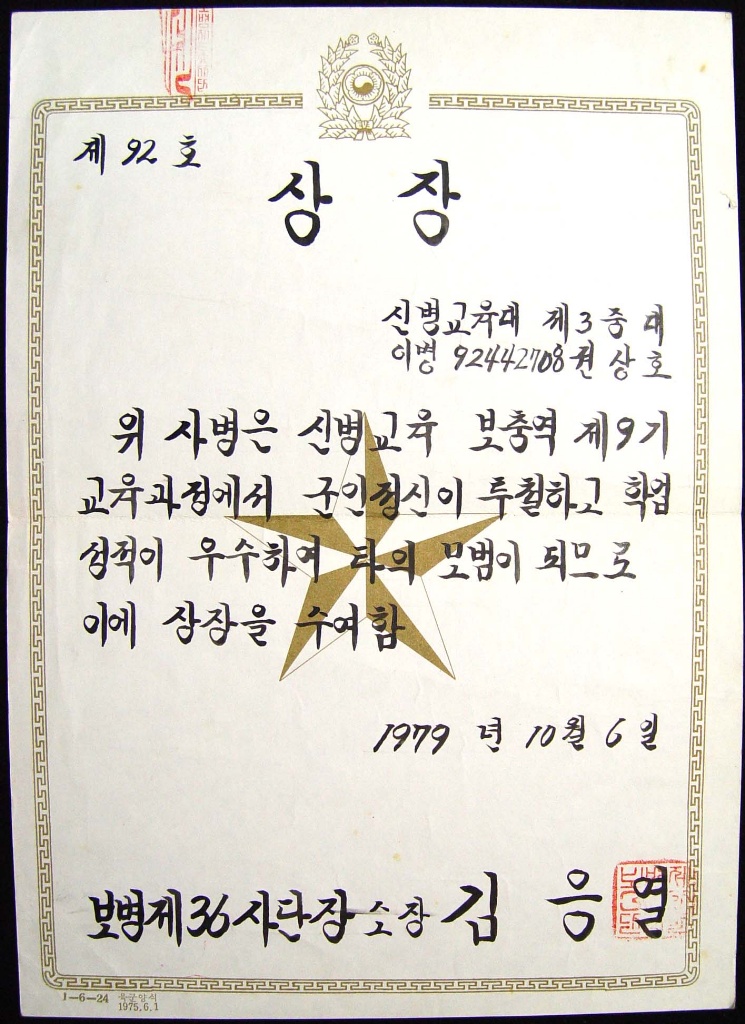 제 92 호
상 장
신병교육대 제3중대
이병 92442708 권상호
위 사병은 신병교육 보충역 제9기
교육과정에서 군인정신이 투철하고 학업
성적이 우수하여 타의 모범이 되므로
이에 상장을 수여함
1979 년 10월 6일
보병제36사단장 소장 김 응 열
1-6-24 육군양식
1975.6.1